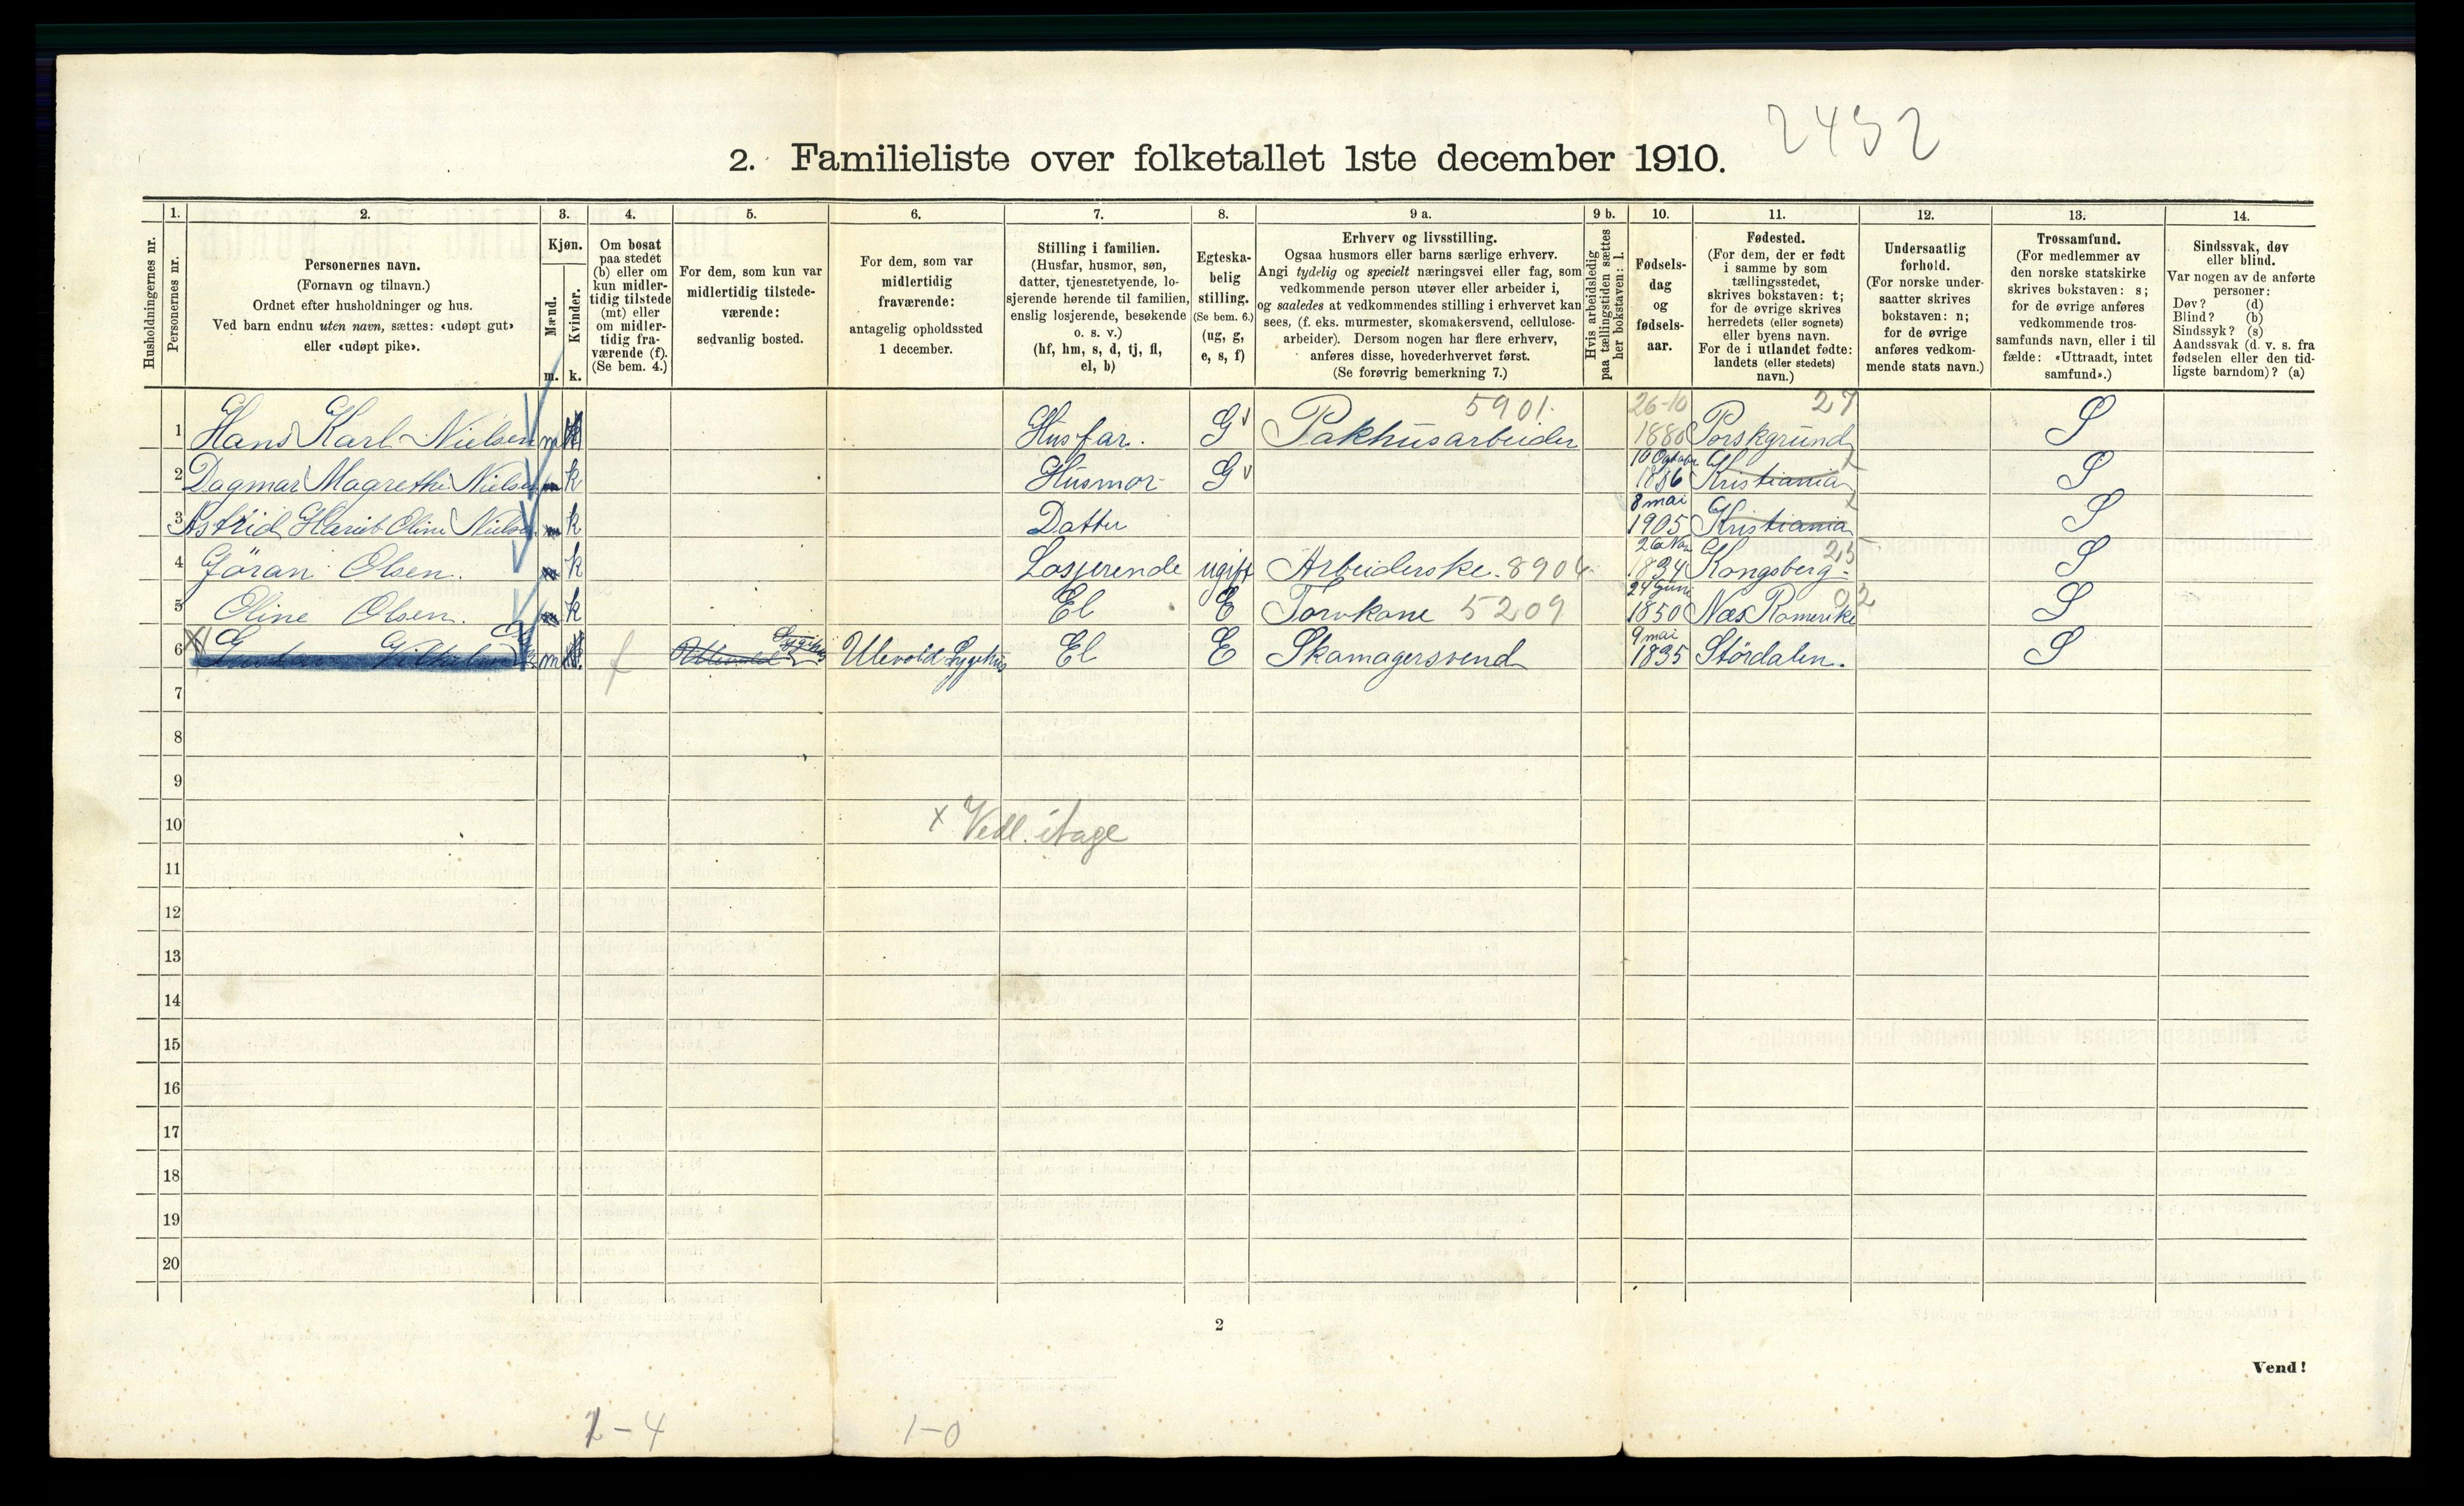 2432
2. Familieliste over folketallet 1ste december 1910.
1. 2. 3. 4. 5. 6. 7. 8. 9 a. 9 b. 10. 11. 12. 13. 14.
Husholdningernes nr.
Personernes nr.
Personernes navn.
(Fornavn og tilnavn.)
Ordnet efter husholdninger og hus.
Ved barn endnu uten navn, sættes: «udøpt gut»
eller «udøpt pike».
Kjøn.
Mænd.
Kvinder.
m. k.
Om bosat
paa stedet
(b) eller om
kun midler-
tidig tilstede
(mt) eller
om midler-
tidig fra-
værende (f).
(Se bem. 4.)
For dem, som kun var
midlertidig tilstede-
værende:
sedvanlig bosted.
For dem, som var
midlertidig
fraværende:
antagelig opholdssted
1 december.
Stilling i familien.
(Husfar, husmor, søn,
datter, tjenestetyende, lo-
sjerende hørende til familien,
enslig losjerende, besøkende
o. s. v.)
(hf, hm, s, d, tj, fl,
el, b)
Egteska-
belig
stilling.
(Se bem. 6.)
(ug, g,
e, s, f)
Erhverv og livsstilling.
Ogsaa husmors eller barns særlige erhverv.
Angi tydelig og specielt næringsvei eller fag, som
vedkommende person utøver eller arbeider i,
og saaledes at vedkommendes stilling i erhvervet kan
sees, (f. eks. murmester, skomakersvend, cellulose-
arbeider). Dersom nogen har flere erhverv,
anføres disse, hovederhvervet først.
(Se forøvrig bemerkning 7.)
Hvis arbeidsledig
paa tællingstiden sættes
her bokstaven: l.
Fødsels-
dag
og
fødsels-
aar.
Fødested.
(For dem, der er født
i samme by som
tællingsstedet,
skrives bokstaven: t;
for de øvrige skrives
herredets (eller sognets)
eller byens navn.
For de i utlandet fødte:
landets (eller stedets)
navn.)
Undersaatlig
forhold.
(For norske under-
saatter skrives
bokstaven: n;
for de øvrige
anføres vedkom-
mende stats navn.)
Trossamfund.
(For medlemmer av
den norske statskirke
skrives bokstaven: s;
for de øvrige anføres
vedkommende tros-
samfunds navn, eller i til
fælde: «Uttraadt, intet
samfund».)
Sindssvak, døv
eller blind.
Var nogen av de anførte
personer:
Døv? (d)
Blind? (b)
Sindssyk? (s)
Aandssvak (d. v. s. fra
fødselen eller den tid-
ligste barndom)? (a)
1 Hans Karl Nielsen m k Husfar. G Pakhusarbeider 5901 26-10 1880 Porskgrund 27 S
2 Dagmar Magrethe Nielsen m k Husmor G 10 Oktober 1886 Kristiania t S
3 Astrid Hariet Oline Nielsen m k Datter 8 mai 1905 Kristiania t S
4 Göran Olsen. m k Losjerende ugift Arbeiderske. 8904 26 Nov 1834 Kongsberg. 25 S
5 Oline Olsen. m k El E Torvkone 5209 24 Juni 1850 Næs Romerike 02 S
6 X m k. f Ullevold Sygehus Ulevold Sygehus El E Skomagersvend 9 mai 1835 Stördalen. S
7
8
9
10
x Vedl. itage
11
12
13
14
15
16
17
18
19
20
2
Vend!
2-4 1-0